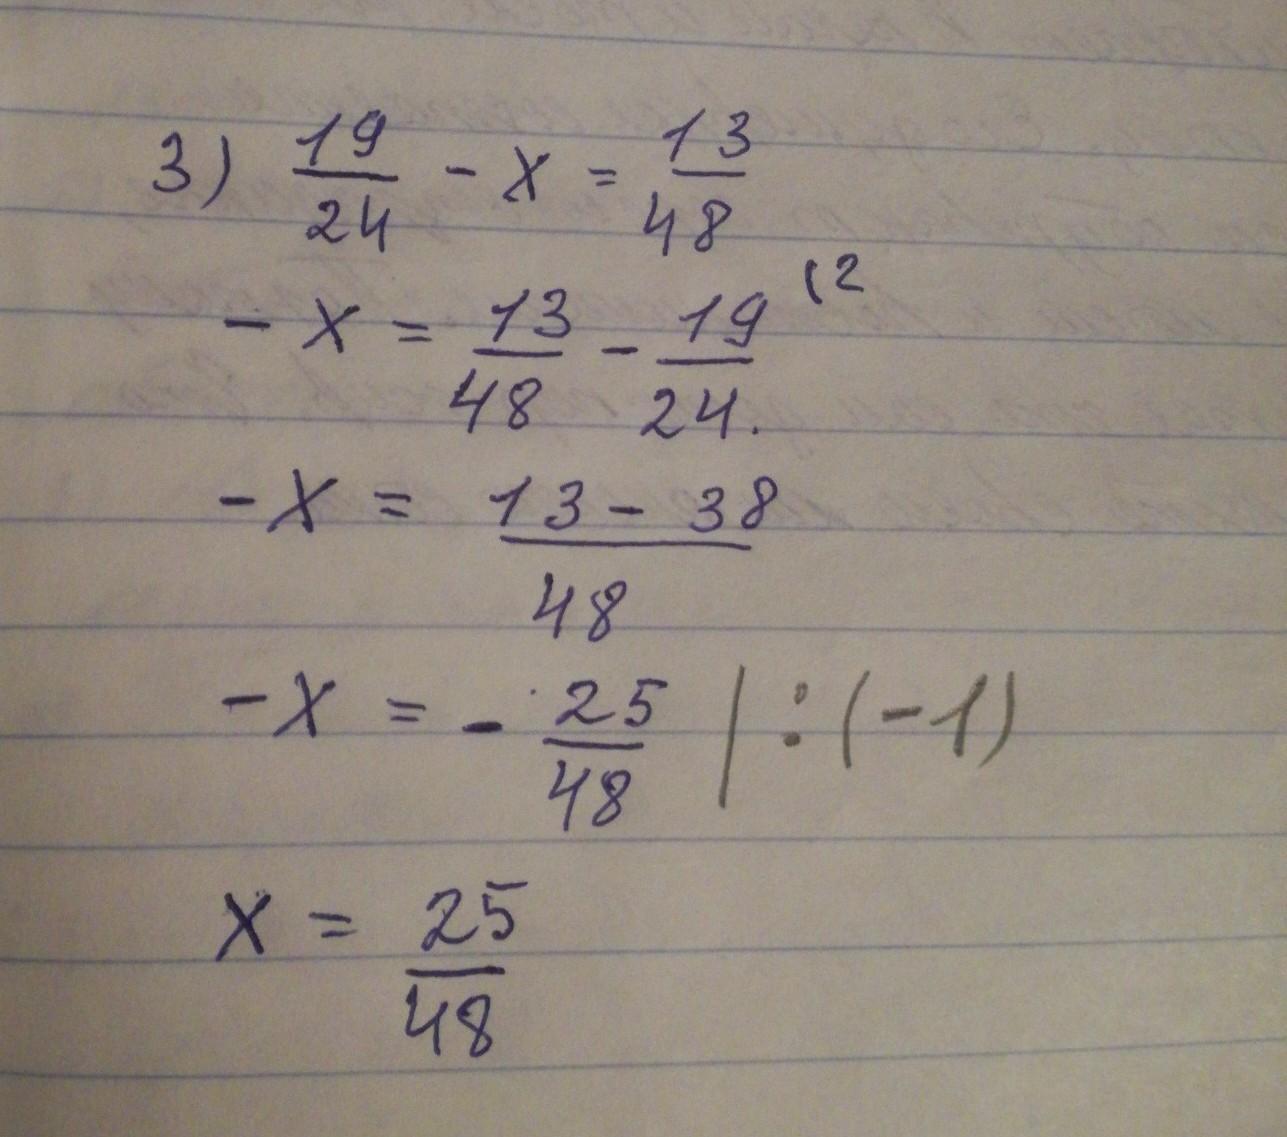 3) 19/24 - x = 13/48
- x = 13/48 - 19/24. (2
- x = 13 - 38/48
- x = - 25/48 | : (-1)
x = 25/48